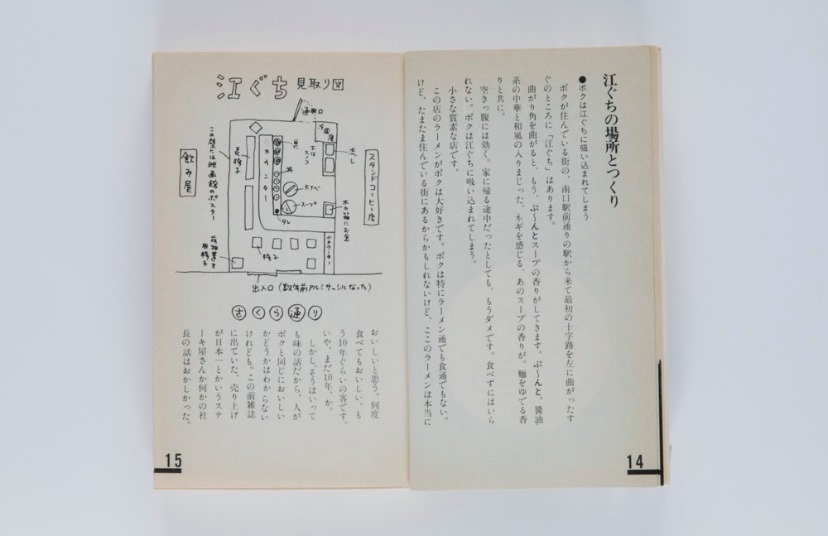 江ぐちの場所とつくり
●ボクは江ぐちに吸い込まれてしまう
ボクが住んでいる街の、南口駅前通りの駅から来て最初の十字路を左に曲がったす
ぐのところに「江ぐち」はあります。
曲がり角を曲がると、もう、ぷ〜んとスープの香りがしてきます。ぷ〜んと、醤油
系の中華と和風の入りまじった、ネギを感じる、あのスープの香りが。麺をゆでる香
りと共に。
空きっ腹には効く。家に帰る途中だったとしても、もうダメです。食べずにはいら
れない。ボクは江ぐちに吸い込まれてしまう。
小さな質素な店です。
この店のラーメンがボクは大好きです。ボクは特にラーメン通でも食通でもない。
けど、たまたま住んでいる街にあるからかもしれないけど、ここのラーメンは本当に
14
江ぐち 見取り図
通用口
冷蔵庫
流し
スタンドコーヒー店
カウンター
長椅子
スープ
タレ
この壁には映画館のポスター
飲み屋
椅子
出入口(数年前アルミサッシになった)
さくら通り
おいしいと思う。何度
食べてもおいしい。も
う10年ぐらいの客です。
いや、まだ10年、か。
しかし、そうはいって
も味の話だから、人が
ボクと同じにおいしい
かどうかはわからない
けれども。この前雑誌
に出ていた、売り上げ
が日本一とかいうステ
ーキ屋さんか何かの社
長の話はおかしかった。
15